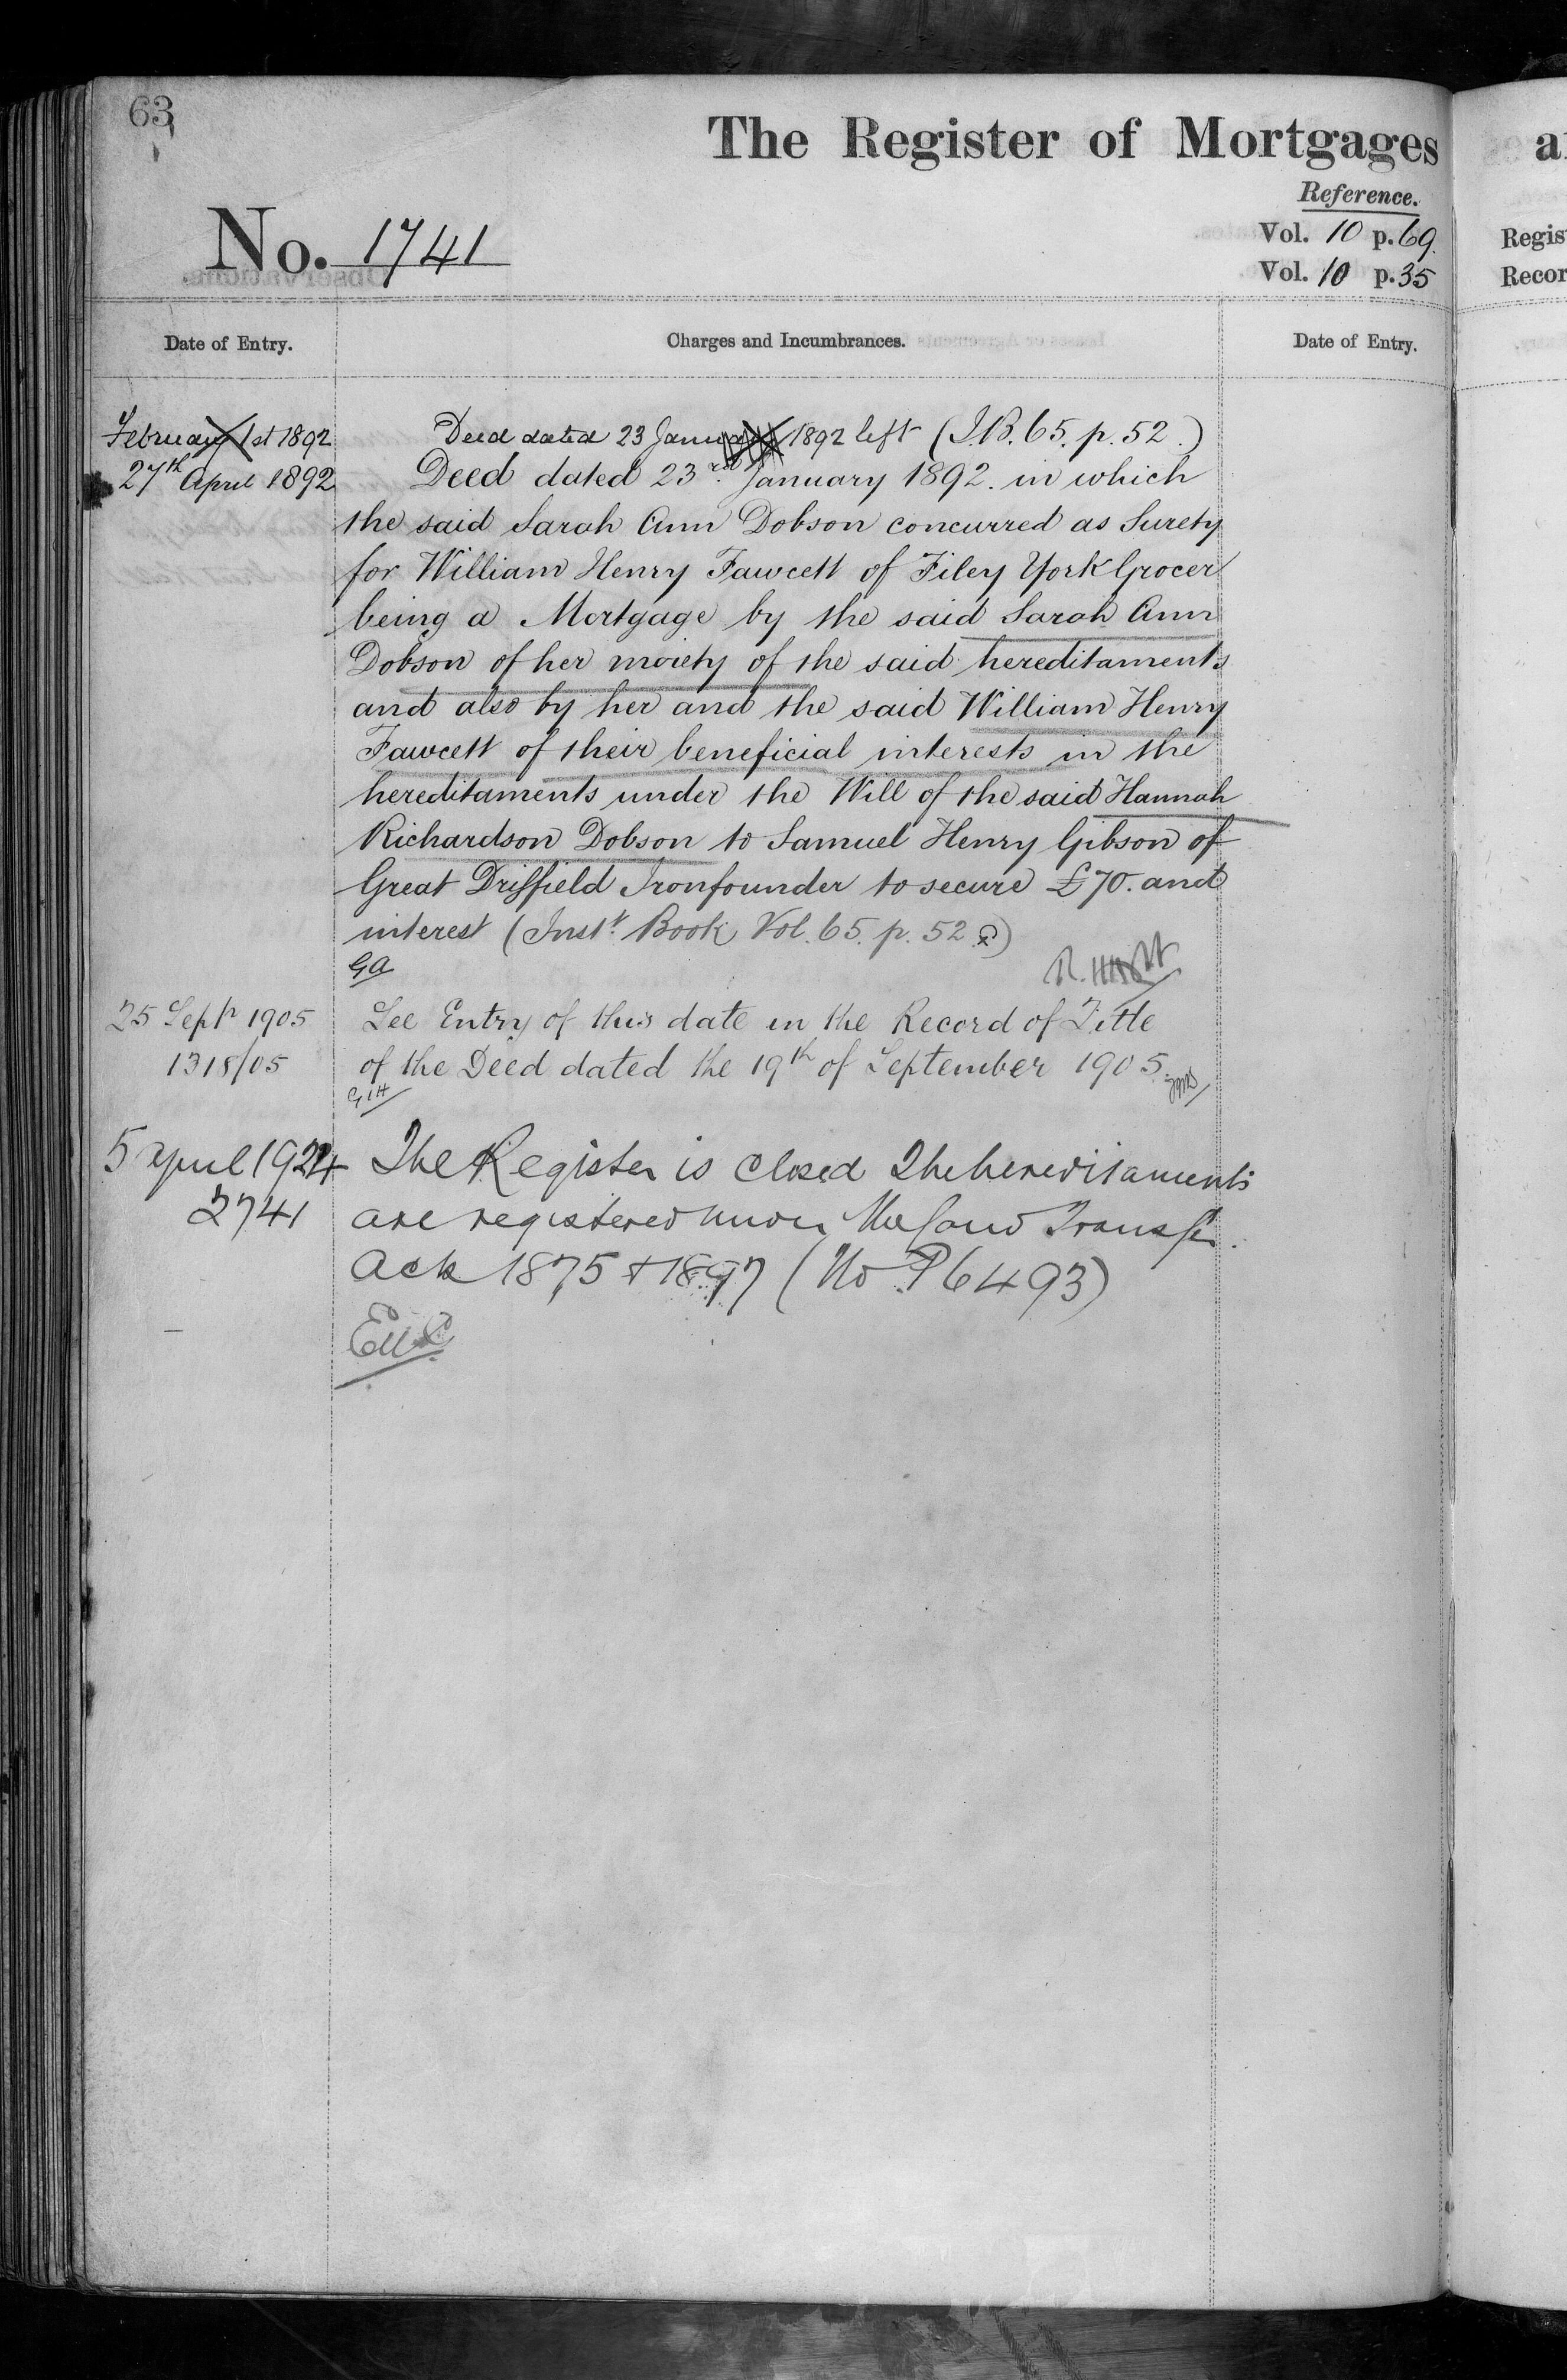 63
The Register of Mortgages
Reference.
No. 1741
Vol. 10 p. 69.
Vol. 10 p. 35
a
Regis
Recor
Date of Entry.
Charges and Incumbrances.
Date of Entry.
February 1st 1892
Deed dated 23 January 1892 left (I.B. 65. p. 52.)
27th April 1892
Deed dated 23rd January 1892. in which
the said Sarah Ann Dobson concurred as Surety
for William Henry Fawcett of Filey York Grocer
being a Mortgage by the said Sarah Ann
Dobson of her moiety of the said hereditaments
and also by her and the said William Henry
Fawcett of their beneficial interests in the
hereditaments under the Will of the said Hannah
Richardson Dobson to Samuel Henry Gibson of
Great Driffield Ironfounder to secure £70. and
interest (Inst. Book Vol. 65. p. 52)
GA
25 Sept 1905
See Entry of this date in the Record of Title
1318/05
of the Deed dated the 19th of September 1905.
GIH
5 April 1924
The Register is closed The hereditaments
2741
are registered under the Land Transfer
Acts 1875 & 1897 (No P6493)